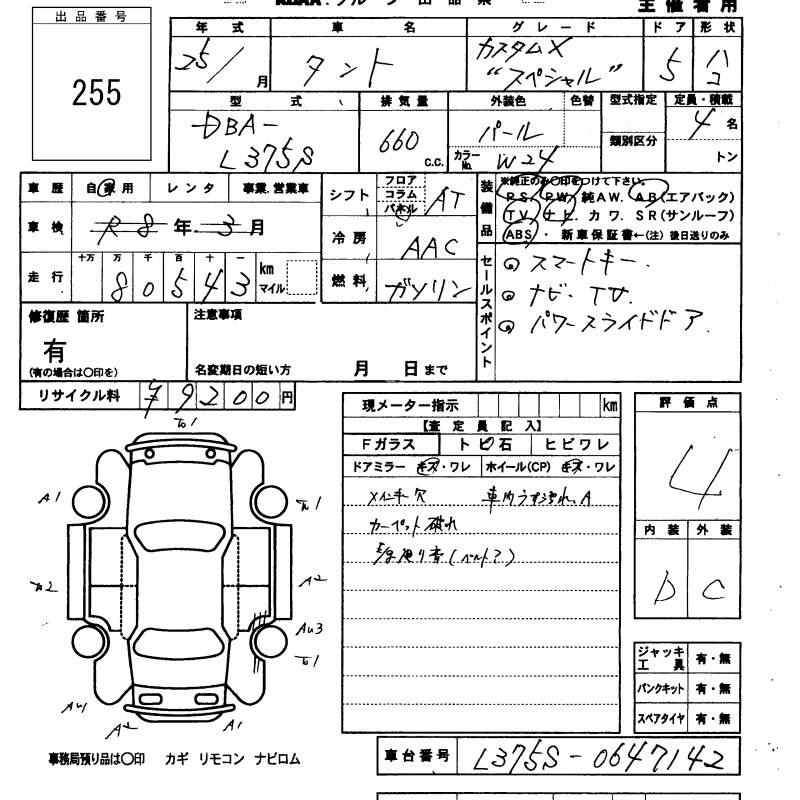 出品番号
255
年式 車名 グレード ドア 形状
25/ 月 タント カスタムX "スペシャル" 5 ハコ
型式 排気量 外装色 色替 型式指定 定員・積載
DBA-L375S 660 c.c. パール カラーNo. W24 類別区分 4 名 トン
車歴 自家用 レンタ 事業.営業車
車検 R8 年 3 月
走行 十万 万 千 百 十 一 km マイル
80543
シフト フロア コラム パネル AT
冷房 AAC
燃料 ガソリン
装備品 ※純正のみ〇印をつけて下さい。
PS. PW. 純AW. AB(エアバック)
TV. ナビ. カワ. SR(サンルーフ)
ABS. 新車保証書←(注) 後日送りのみ
セールスポイント
スマートキー.
ナビ. TV.
パワースライドドア.
修復歴 箇所
有
(有の場合は〇印を)
注意事項
名変期日の短い方 月 日まで
リサイクル料 ¥9200円
現メーター指示 km
【査定員記入】
Fガラス トビ石 ヒビワレ
ドアミラー キズ・ワレ ホイール(CP) キズ・ワレ
カーペット
評価点
4
内装 外装
D C
ジャッキ工具 有・無
パンクキット 有・無
スペアタイヤ 有・無
A1
A2
A1
事務局預り品は〇印 カギ リモコン ナビロム
車台番号 L375S-0647142